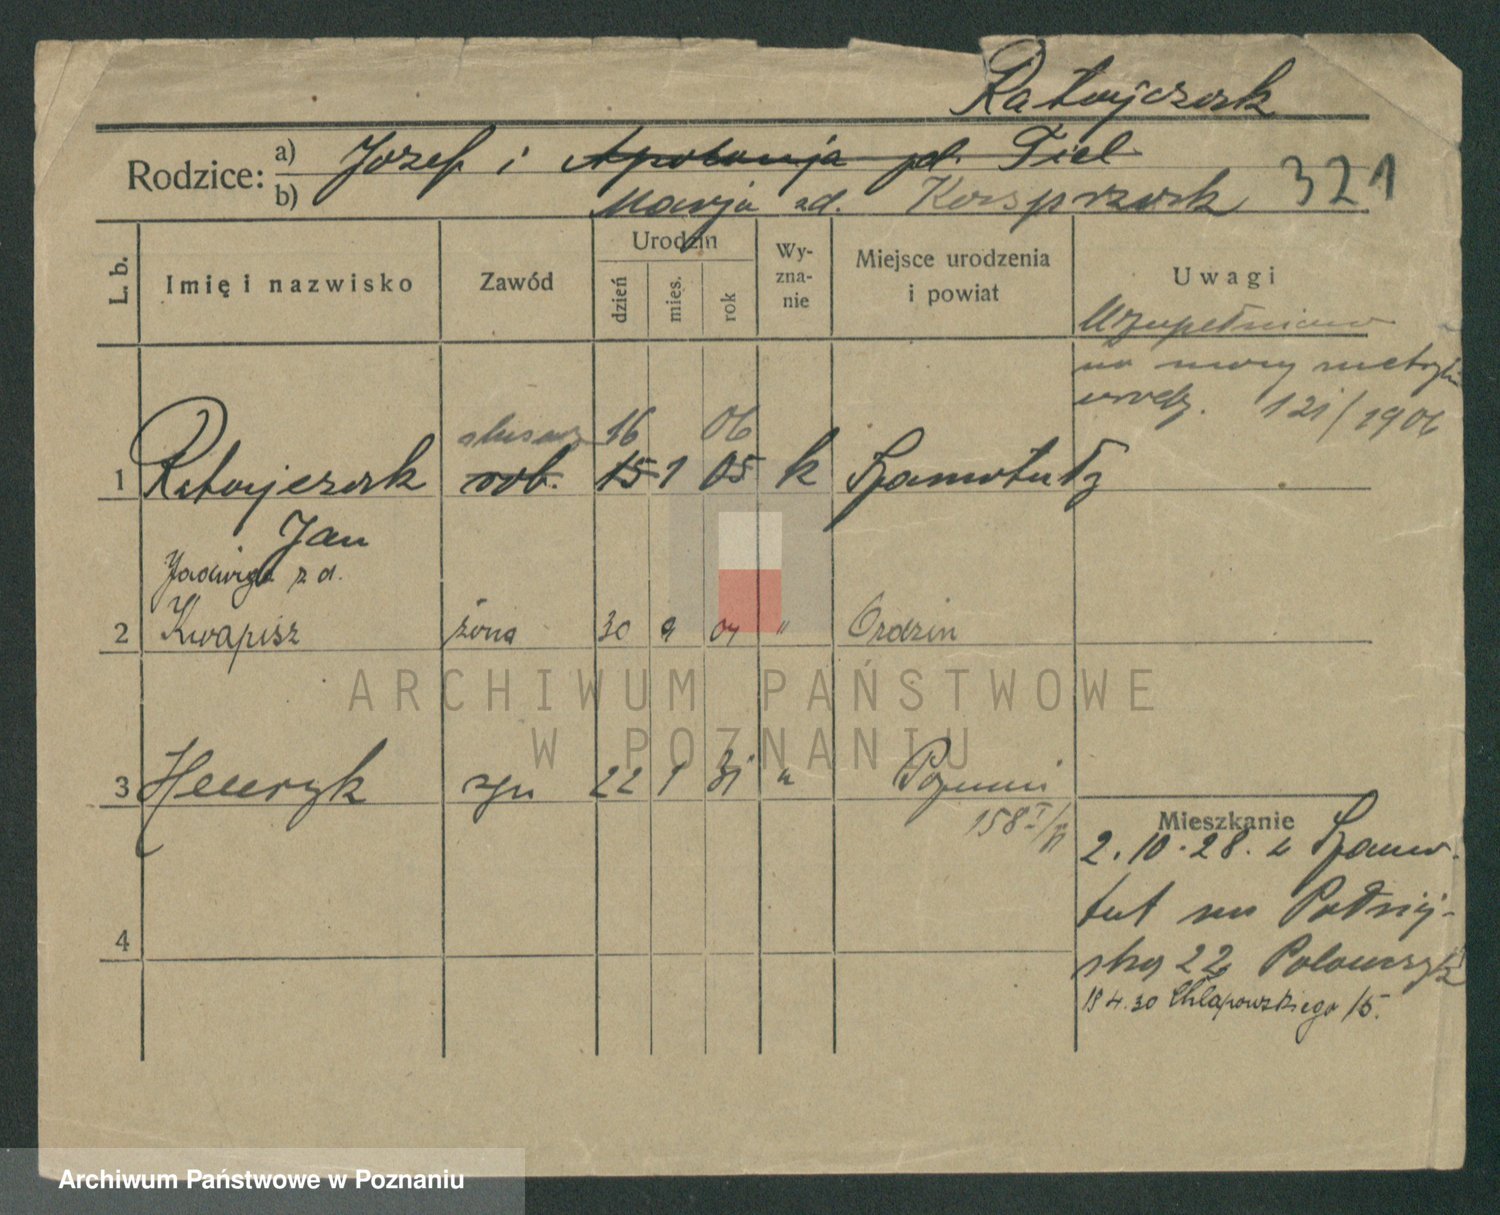 Ratajczak
Rodzice: a) Józef i Apolonja zd. Fiel
b) Marja zd. Kasprzak 321
L. b. Imię i nazwisko Zawód Urodzin dzień mies. rok Wy-zna-nie Miejsce urodzenia i powiat Uwagi
Uzupełniono
na mocy metryki
urodz. 121/1906
ślusarz 16 06
1 Ratajczak rob. 15 1 05 k Szamotuły
Jan
Jadwiga z d.
2 Kwapisz żona 30 9 04 " Ordzin
3 Henryk syn 22 1 31 " Poznań
158 I/31
Mieszkanie
2.10.28. z Szamo-
tuł na
22
4
18 4.30 Chłapowskiego 15.
ARCHIWUM PAŃSTWOWE
W POZNANIU
Archiwum Państwowe w Poznaniu